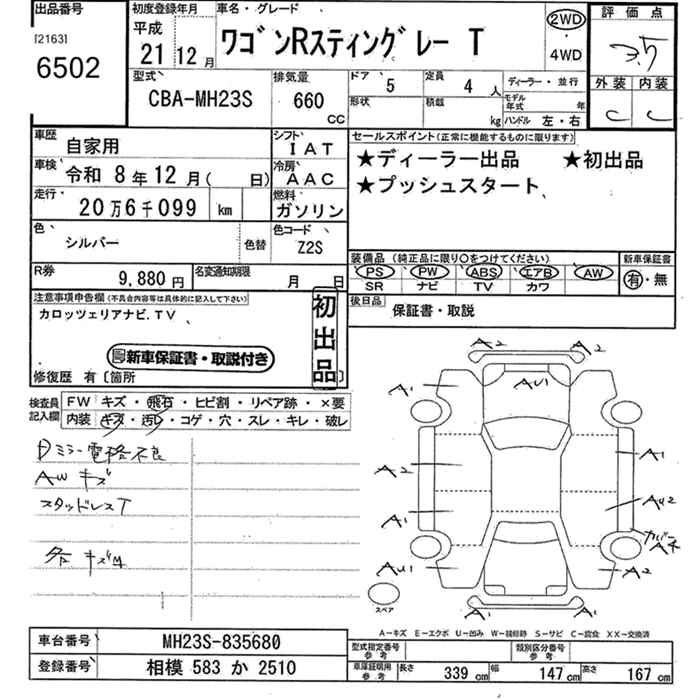 出品番号 初度登録年月 車名・グレード 評価点
[2163] 6502 平成 21年 12月 ワゴンRスティングレー T 2WD ・ 4WD 3.5
型式 CBA-MH23S 排気量 660 CC ドア 5 定員 4 人 ディーラー・並行 外装 C 内装 C
形状 積載 kg モデル年式 年 ハンドル 左・右
車歴 自家用 シフト IAT セールスポイント(正常に機能するものに限ります)
車検 令和 8年 12月 ( 日) 冷房 AAC ★ディーラー出品 ★初出品
走行 20万6千099 km 燃料 ガソリン ★プッシュスタート
色 シルバー 色替 色コード Z2S
装備品(純正品に限り○をつけてください) 新車保証書
PS PW ABS エアB AW 有・無
SR ナビ TV カワ
R券 9,880円 名変通知期限 月 日
後日品 保証書・取説
注意事項申告欄(不具合内容等は具体的に記入して下さい) 初出品
カロッツェリアナビ.TV
新車保証書・取説付き
修復歴 有〔箇所 〕
検査員記入欄 FW キズ・飛石・ヒビ割・リペア跡・×要
内装 キズ・汚レ・コゲ・穴・スレ・キレ・破レ
ミラー電格不良
AWキズ
スタッドレスT
各 キズ凹
A2 A2
A1 AU1
A2 A1
A1 AU2
AU1 カバー A2
A1 A1
スペア
A-キズ E-エクボ U-凹み W-補修跡 S-サビ C-腐食 XX-交換済
車台番号 MH23S-835680 型式指定番号 参考 類別区分番号 参考
登録番号 相模 583 か 2510 車庫証明用 参考 長さ 339 cm 幅 147 cm 高さ 167 cm